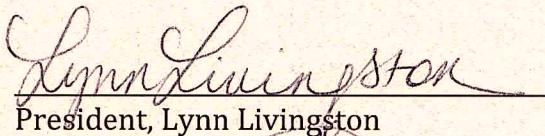 Lynn Livingston
President, Lynn Livingston